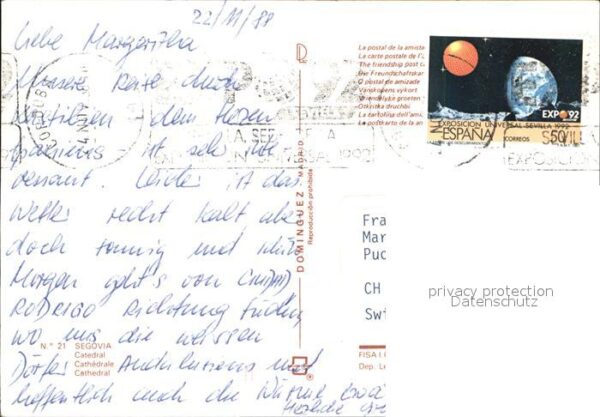 22/11/88
Liebe Margaritha
Unsere Reise durch
Kastilien dem Herzen
Spaniens ist sehr inte-
ressant. Leider ist das
Wetter recht kalt aber
doch sonnig und
Morgen geht's von CIUDAD
RODRIGO Richtung Süden,
wo uns die weissen
Dörfer Andalusiens und
hoffentlich auch die Wärme
Herzliche
N.° 21 SEGOVIA
Catedral
Cathédrale
Cathedral
DOMINGUEZ - MADRID
Reproducción prohibida
La postal de la amista
La carte postale de l'a
The friendship post c
Die Freundschaftskar
O postal de amizade
Vanskapens vykort
Vriendelijke groeten
La tarjolina dell'
La postkarto de la
EXPO 92
EXPOSICION UNIVERSAL SEVILLA 1992
ESPAÑA
CORREOS
50
1992
EXPOSICION
Fra
Mar
Puc
CH
Swi
privacy protection
Datenschutz
FISA I
Dep. L